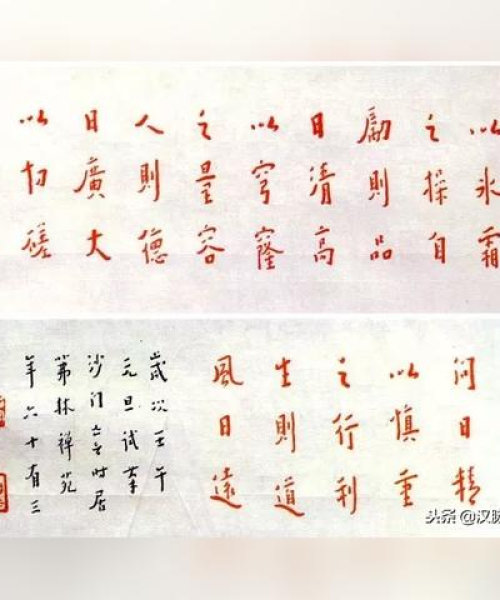 以冰霜
之操自
勵則品
日清高
以穹窿
之量容
人則德
日廣大
以切磋
問日精
以慎重
之行利
生則道
風日遠
歲次壬午
元旦試筆
沙门亡言时居
茀林禪苑
年六十有三
头条 @汉